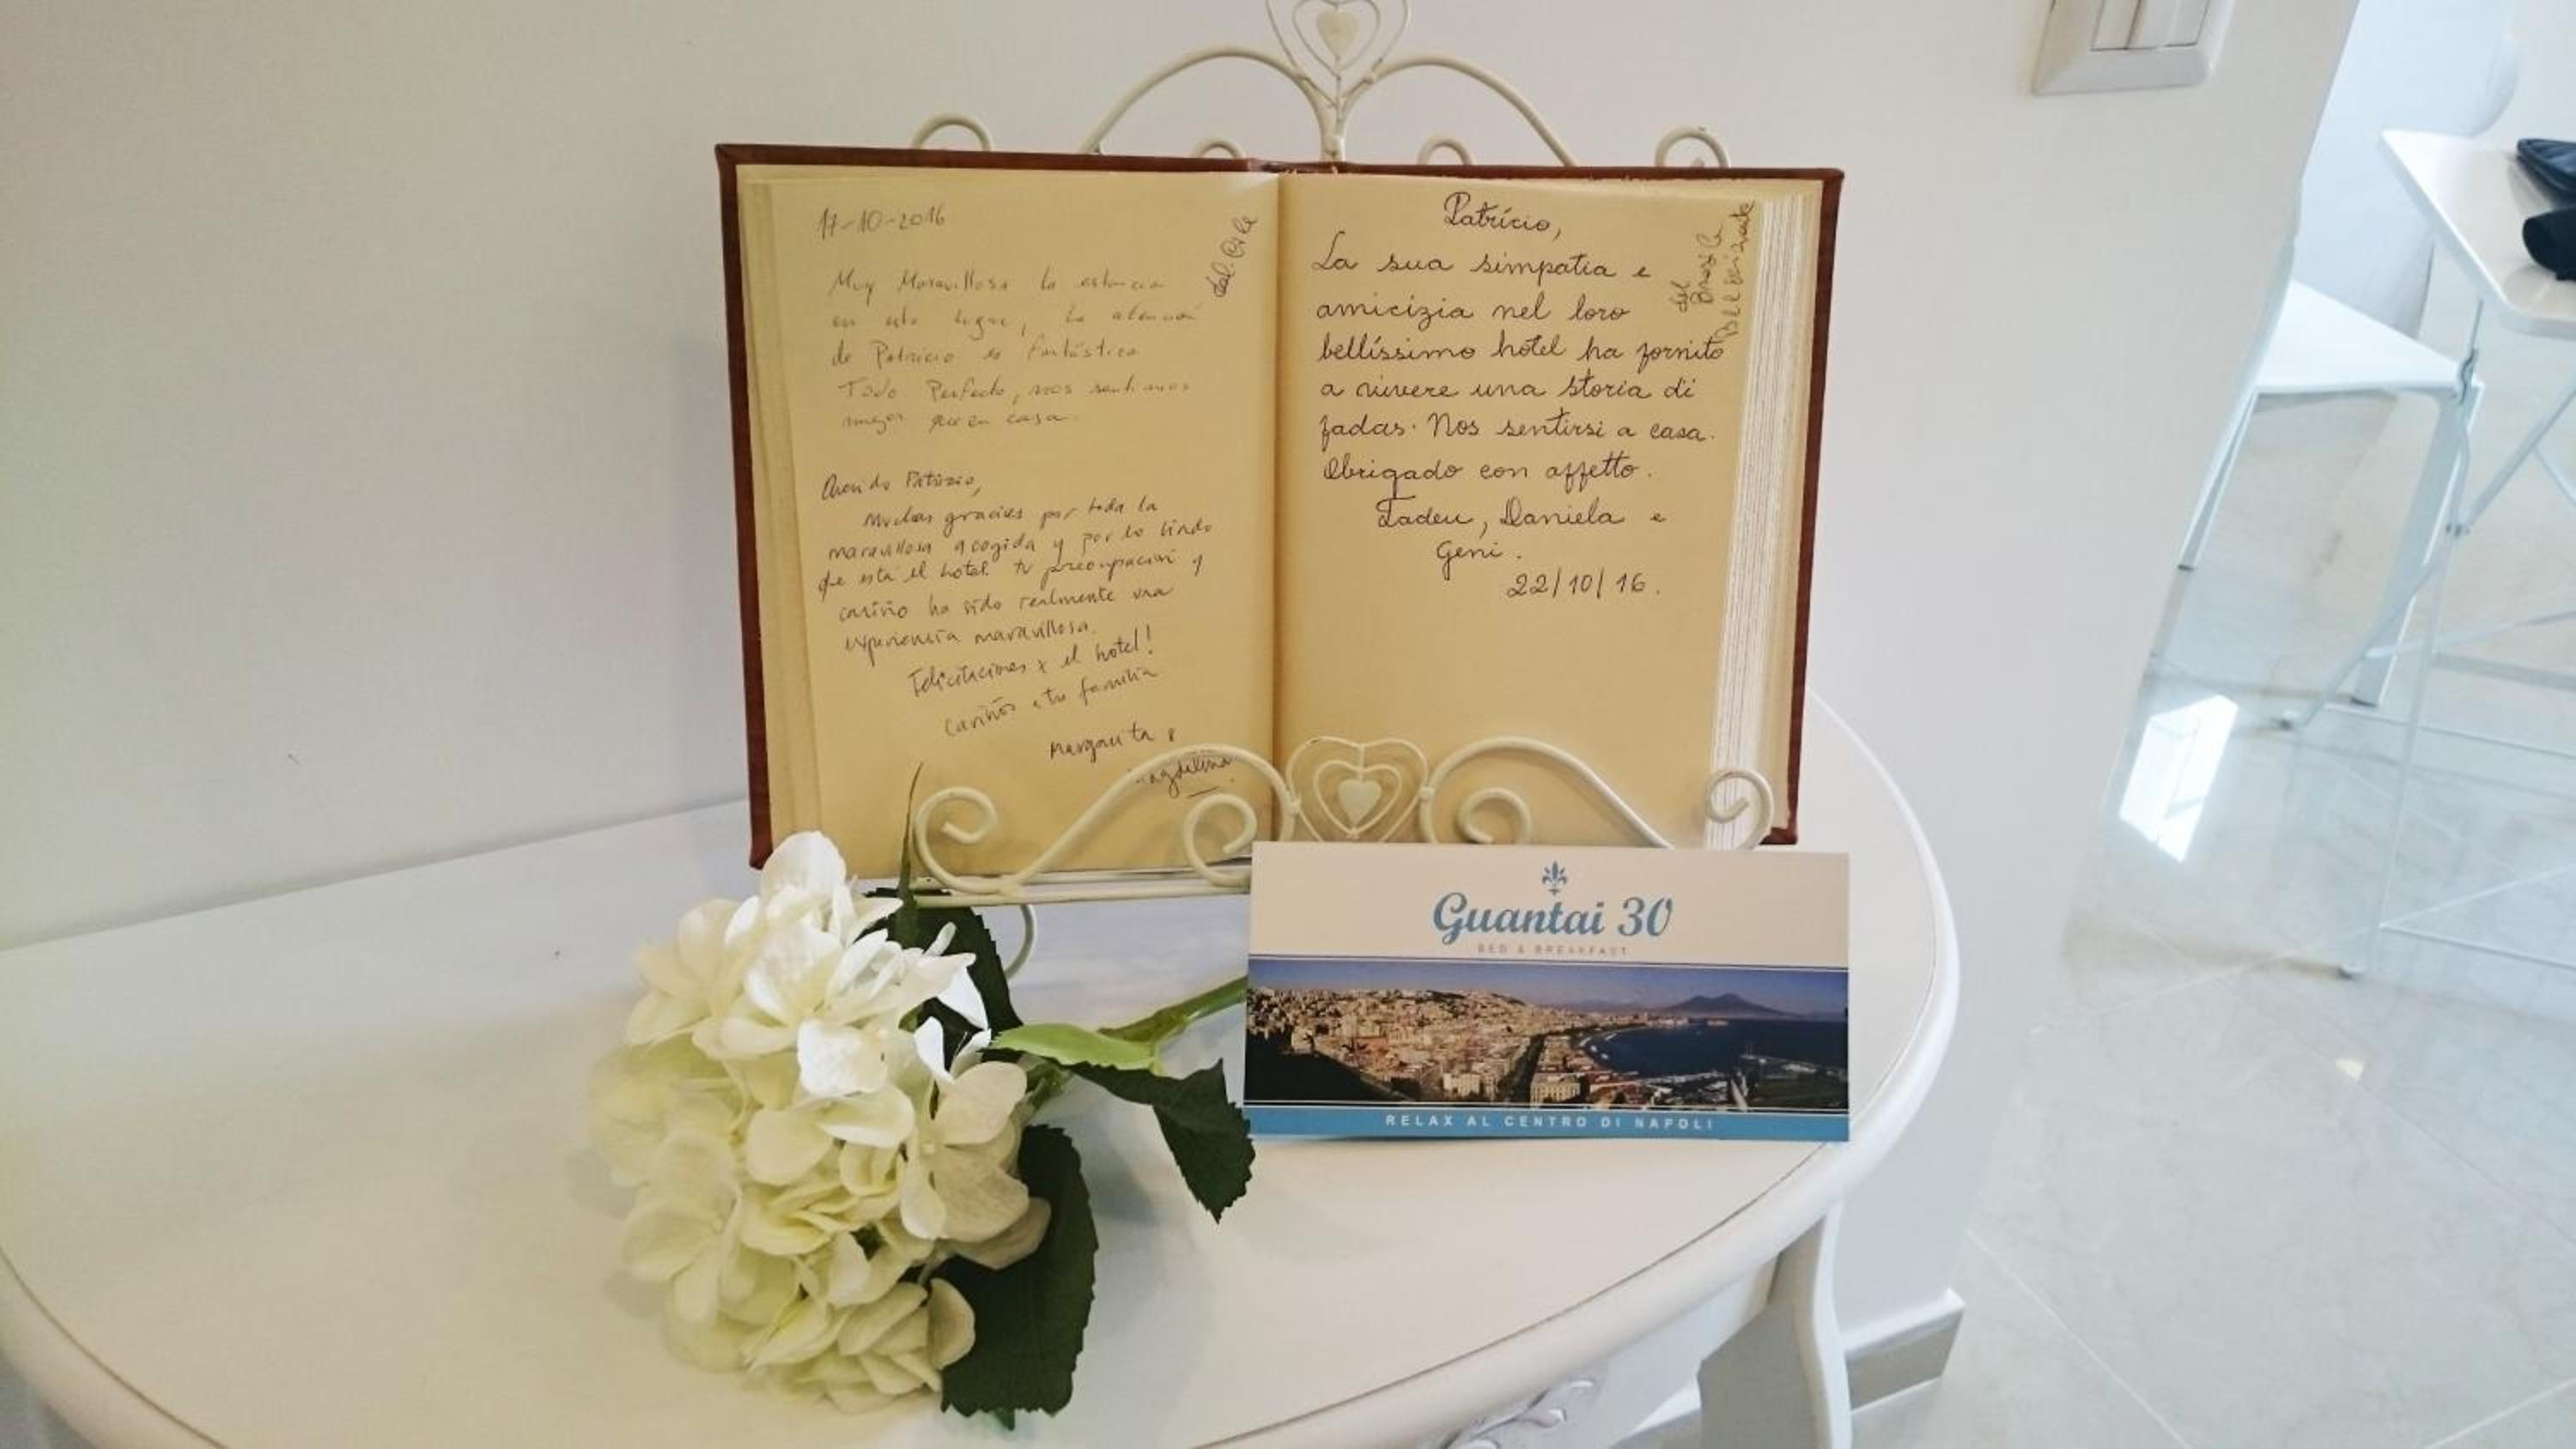 17-10-2016
dal Cile
Muy Maravillosa la estancia
en este lugar, la atención
de Patricio es fantástica
Todo Perfecto, nos sentimos
mejor que en casa.
Querido Patrizio,
Muchas gracias por toda la
maravillosa acogida y por lo lindo
que está el hotel. tu preocupación y
cariño ha sido realmente una
experiencia maravillosa.
Felicitaciones x el hotel!
Cariños a tu familia
Margarita y
Magdalena
Patrício,
dal Brasile
La sua simpatia e
amicizia nel loro
bellíssimo hotel ha fornito
a vivere una storia di
fadas. Nos sentirsi a casa.
Obrigado con affetto.
Tadeu, Daniela e
Geni.
22/10/16.
Guantai 30
BED & BREAKFAST
RELAX AL CENTRO DI NAPOLI